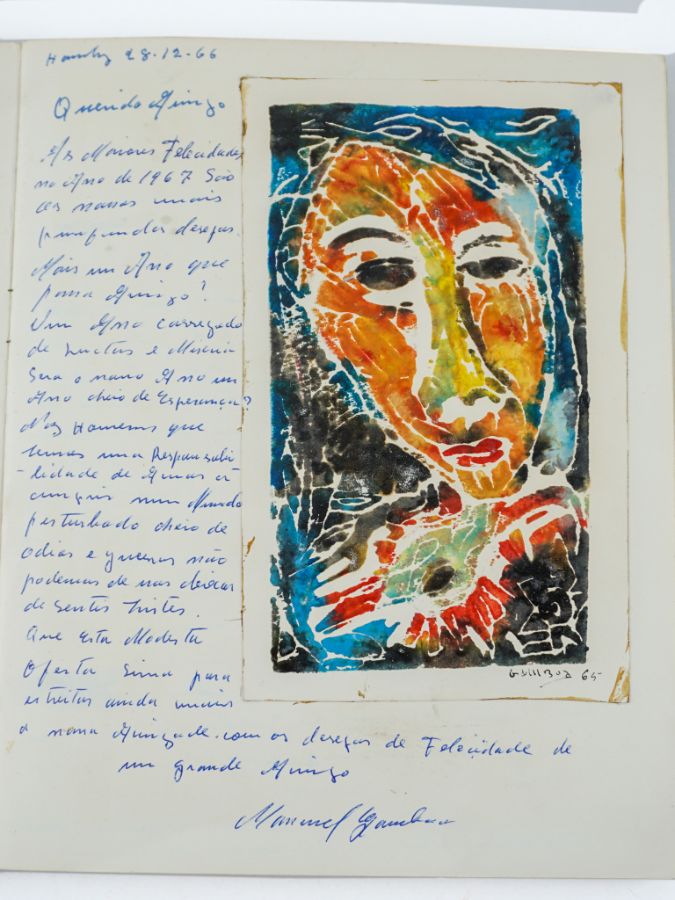 28.12.66
Querido Amigo
As Maiores Felicidades
no Ano de 1967 São
os nossos mais
profundos desejos.
Mais um Ano que
passa Amigo!
Um Ano carregado
de Luctas e Miseria
Sera o novo Ano um
Ano cheio de Esperança?
Nós Homens que
temos uma Responsabi-
-lidade de Amor a
cumprir num Mundo
perturbado cheio de
odios e guerras não
podemos de nos deixar
de sentir tristes.
Que Esta Modesta
Oferta Sirva para
estreitar ainda mais
a nossa Amizade. com os desejos de Felicidade de
um grande Amigo
Manuel Gamboa
GAMBOA 65